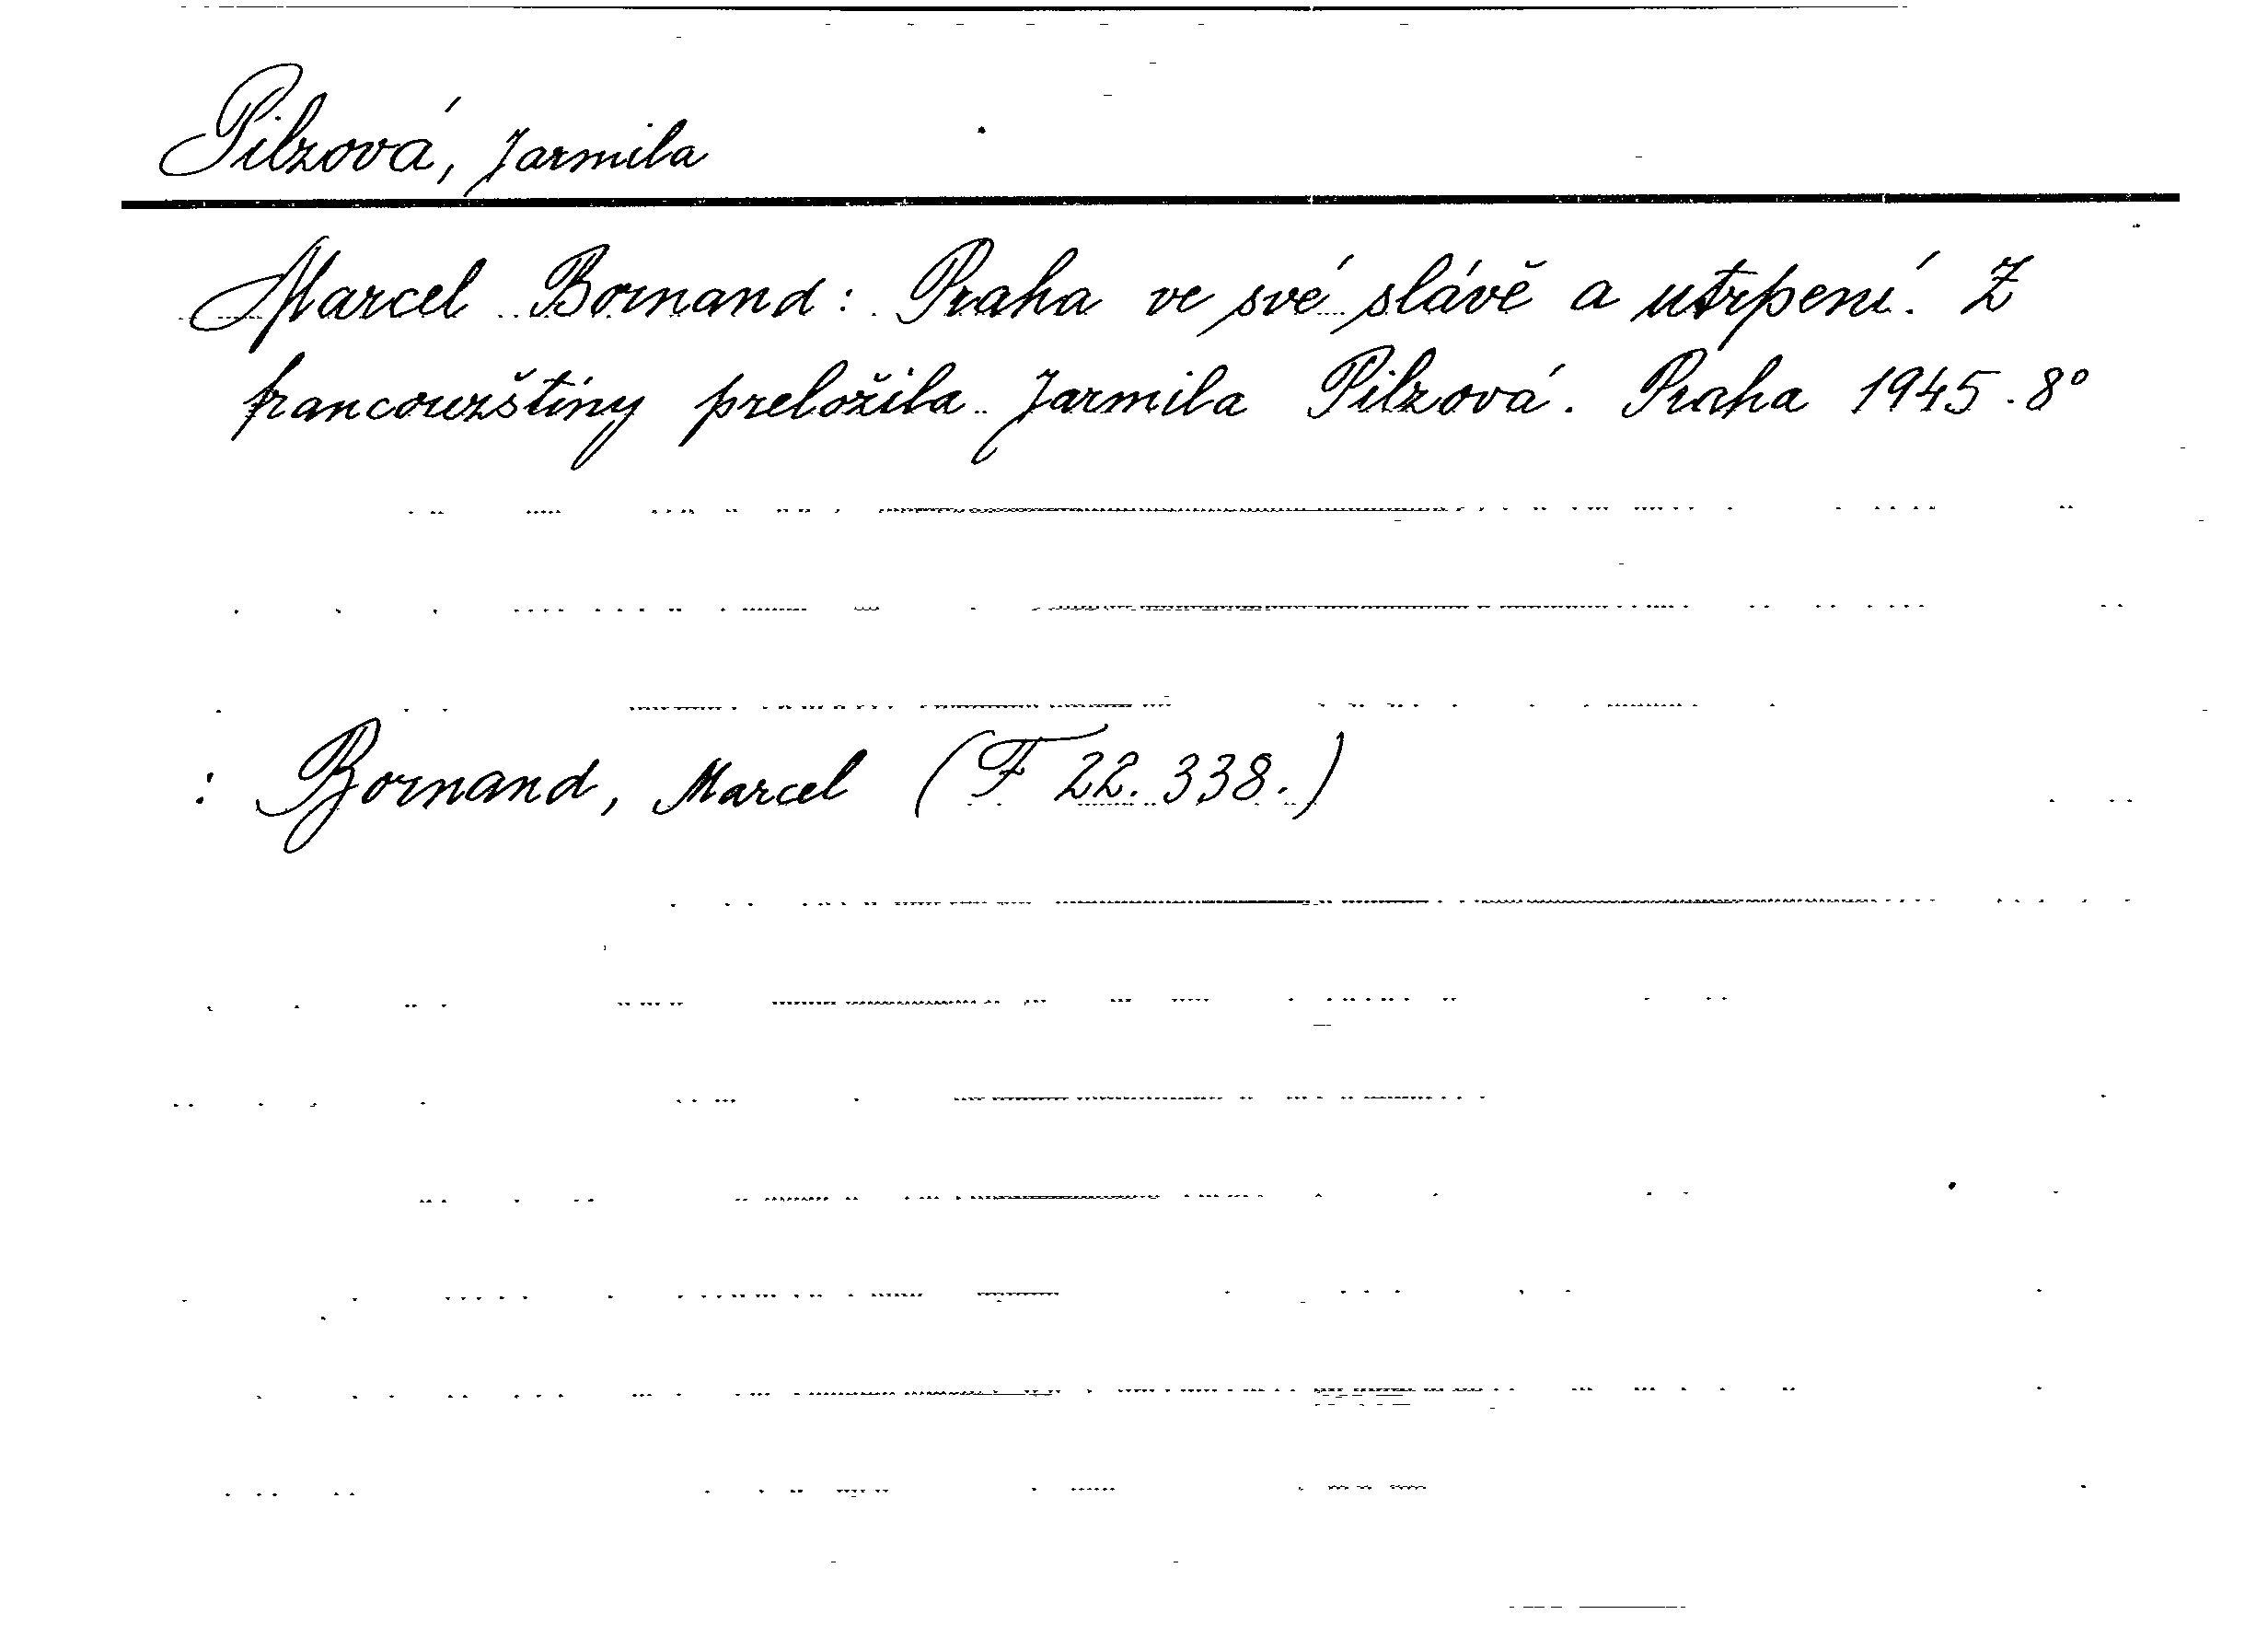 Pilzová, Jarmila
Marcel Bornand: Praha ve své slávě a utrpení. Z
francouzštiny preložila Jarmila Pilzová. Praha 1945. 8°
: Bornand, Marcel (F 22.338.)